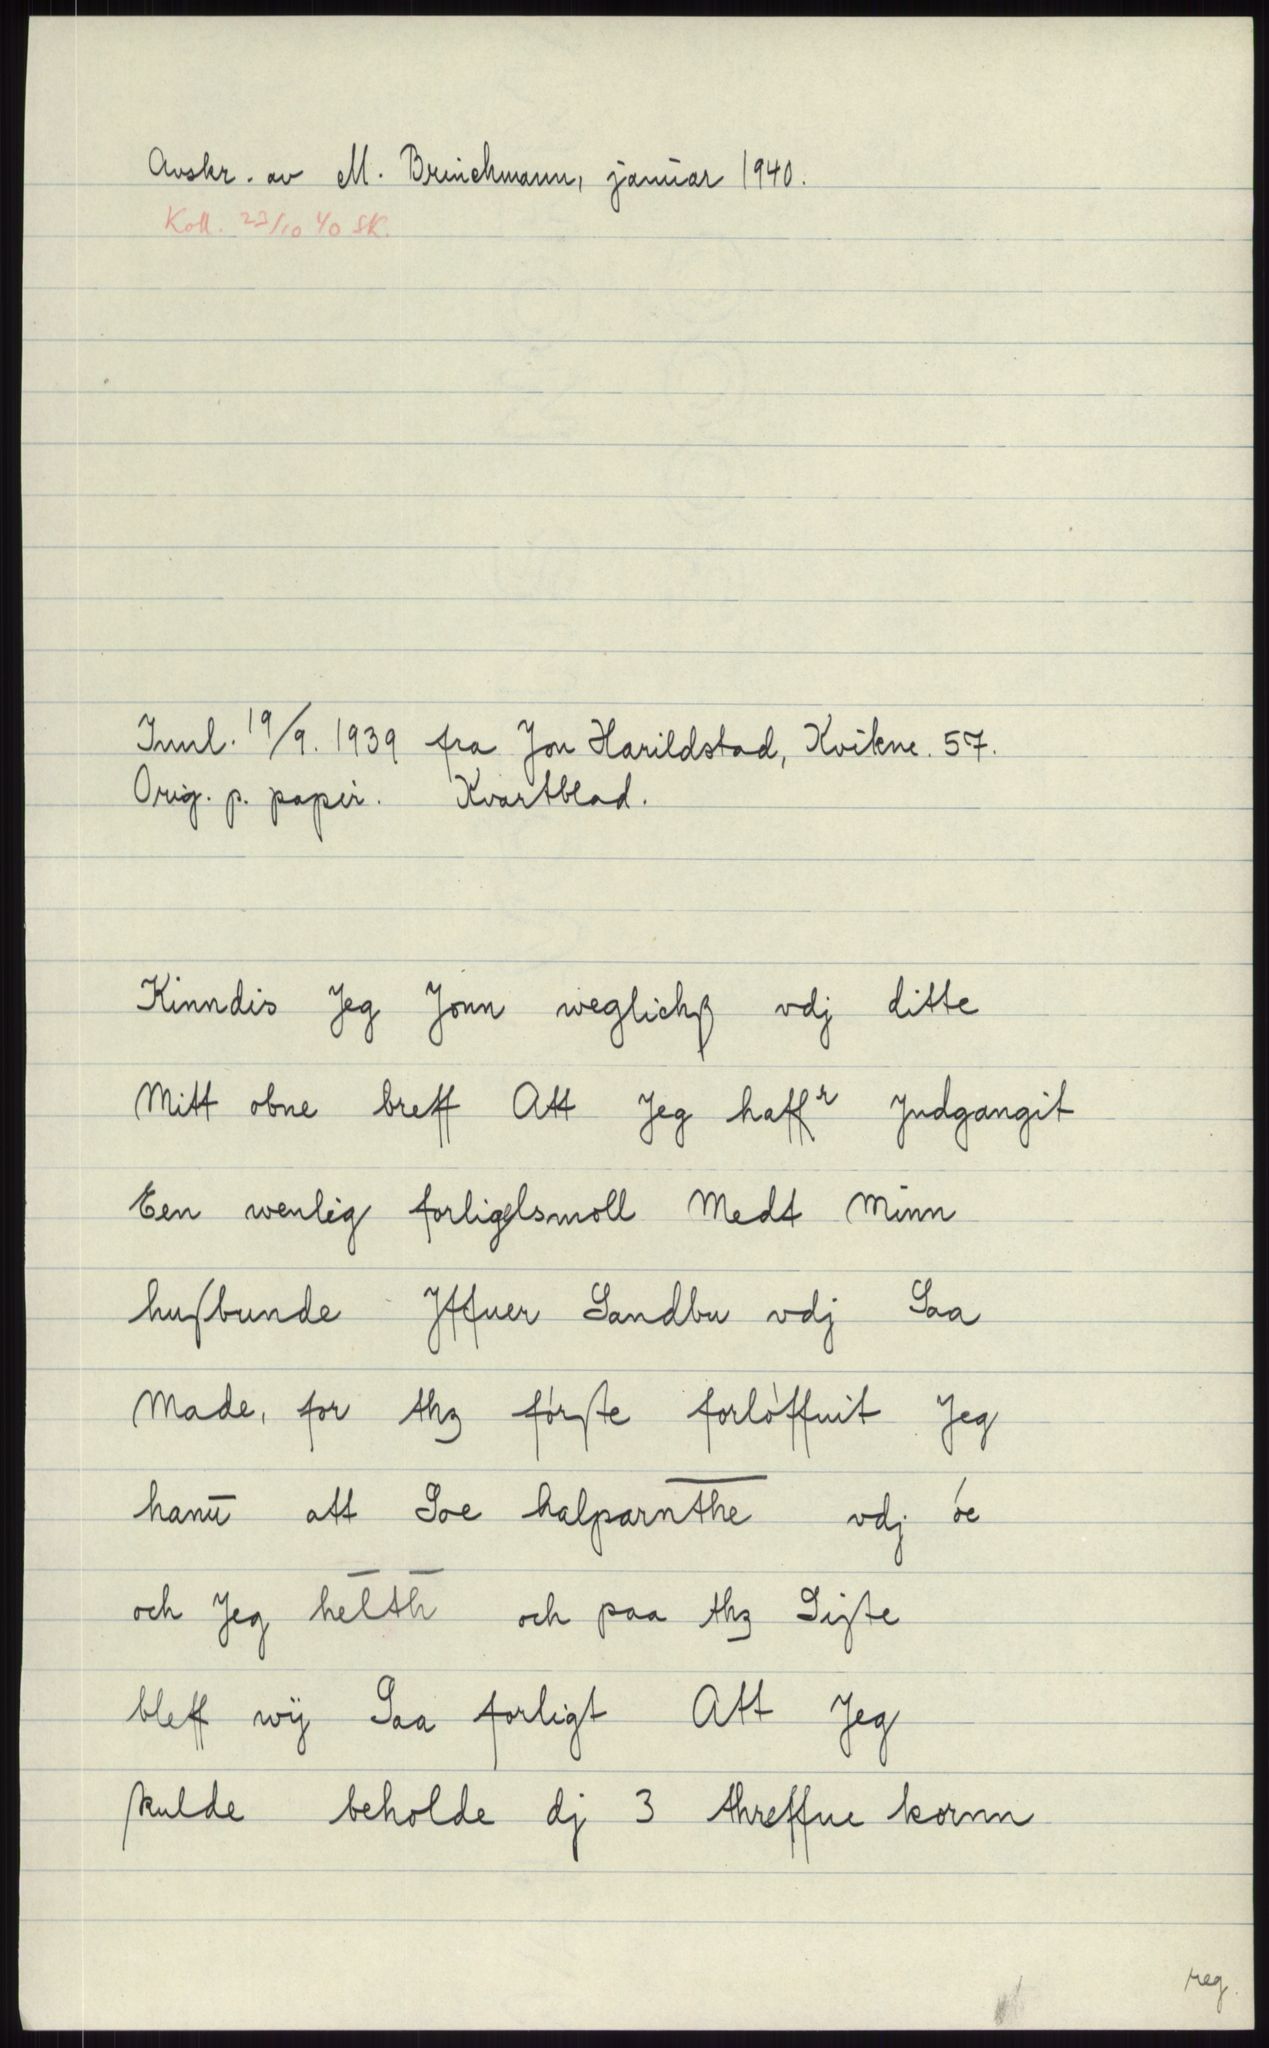 Avskr. av M. Brinchmann, januar 1940.
Koll. 23/10 40 SK.
Innl. 19/9. 1939 fra Jon Harildstad, Kvikne. 57.
Orig. p. papir. Kvartblad.
Kinndis Jeg Jonn weglichſ vdj ditte
Mitt obne breff Att Jeg haffr Jndgangit
Een wenlig forligelsmoll Medt Minn
huſbunde Jffuer Sandbu vdj Saa
Made, for thzførſte forløffuit Jeg
hanū att Soe halparn̄the vdj øe
och Jeg hel̄th̄ och paa thz Siſte
bleff wÿ Saa forligt Att Jeg
ſkulde beholde dj 3 threffue kornn
reg.